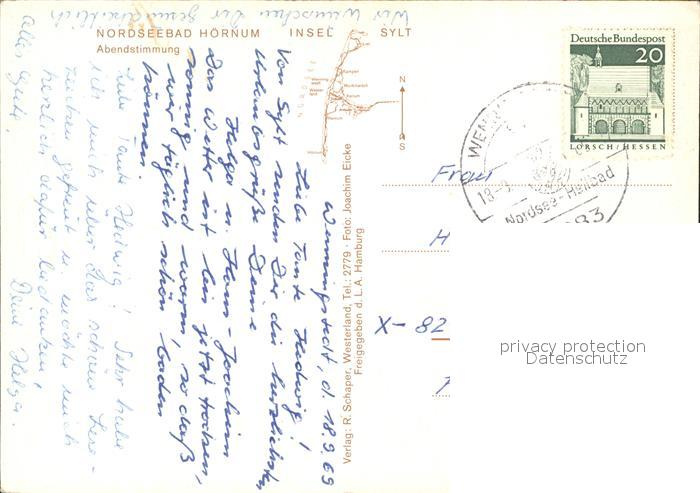 Wir wünschen Dir
NORDSEEBAD HÖRNUM INSEL SYLT
Abendstimmung
NORDSEE
N
S
Deutsche Bundespost
20
LORSCH/HESSEN
WENN
18-9
Nordsee-Heilbad
83
Frau
H
X-82
privacy protection
Datenschutz
Verlag: R. Schaper, Westerland, Tel.: 2779 · Foto: Joachim Eicke
Freigegeben d. L.A. Hamburg
Wenningstedt, d. 18.9.69
Liebe Tante Hedwig!
Von Sylt senden Dir die herzlichsten
Urlaubsgrüße Deine
Helga u. Hans-Joachim
Das Wetter ist bis jetzt trocken,
sonnig und warm, so daß
wir täglich schön baden
können.
Liebe Tante Hedwig! Sehr habe
ich mich über das schöne
gefreut u. möchte mich
herzlich dafür bedanken!
Alles Gute, Deine Helga.